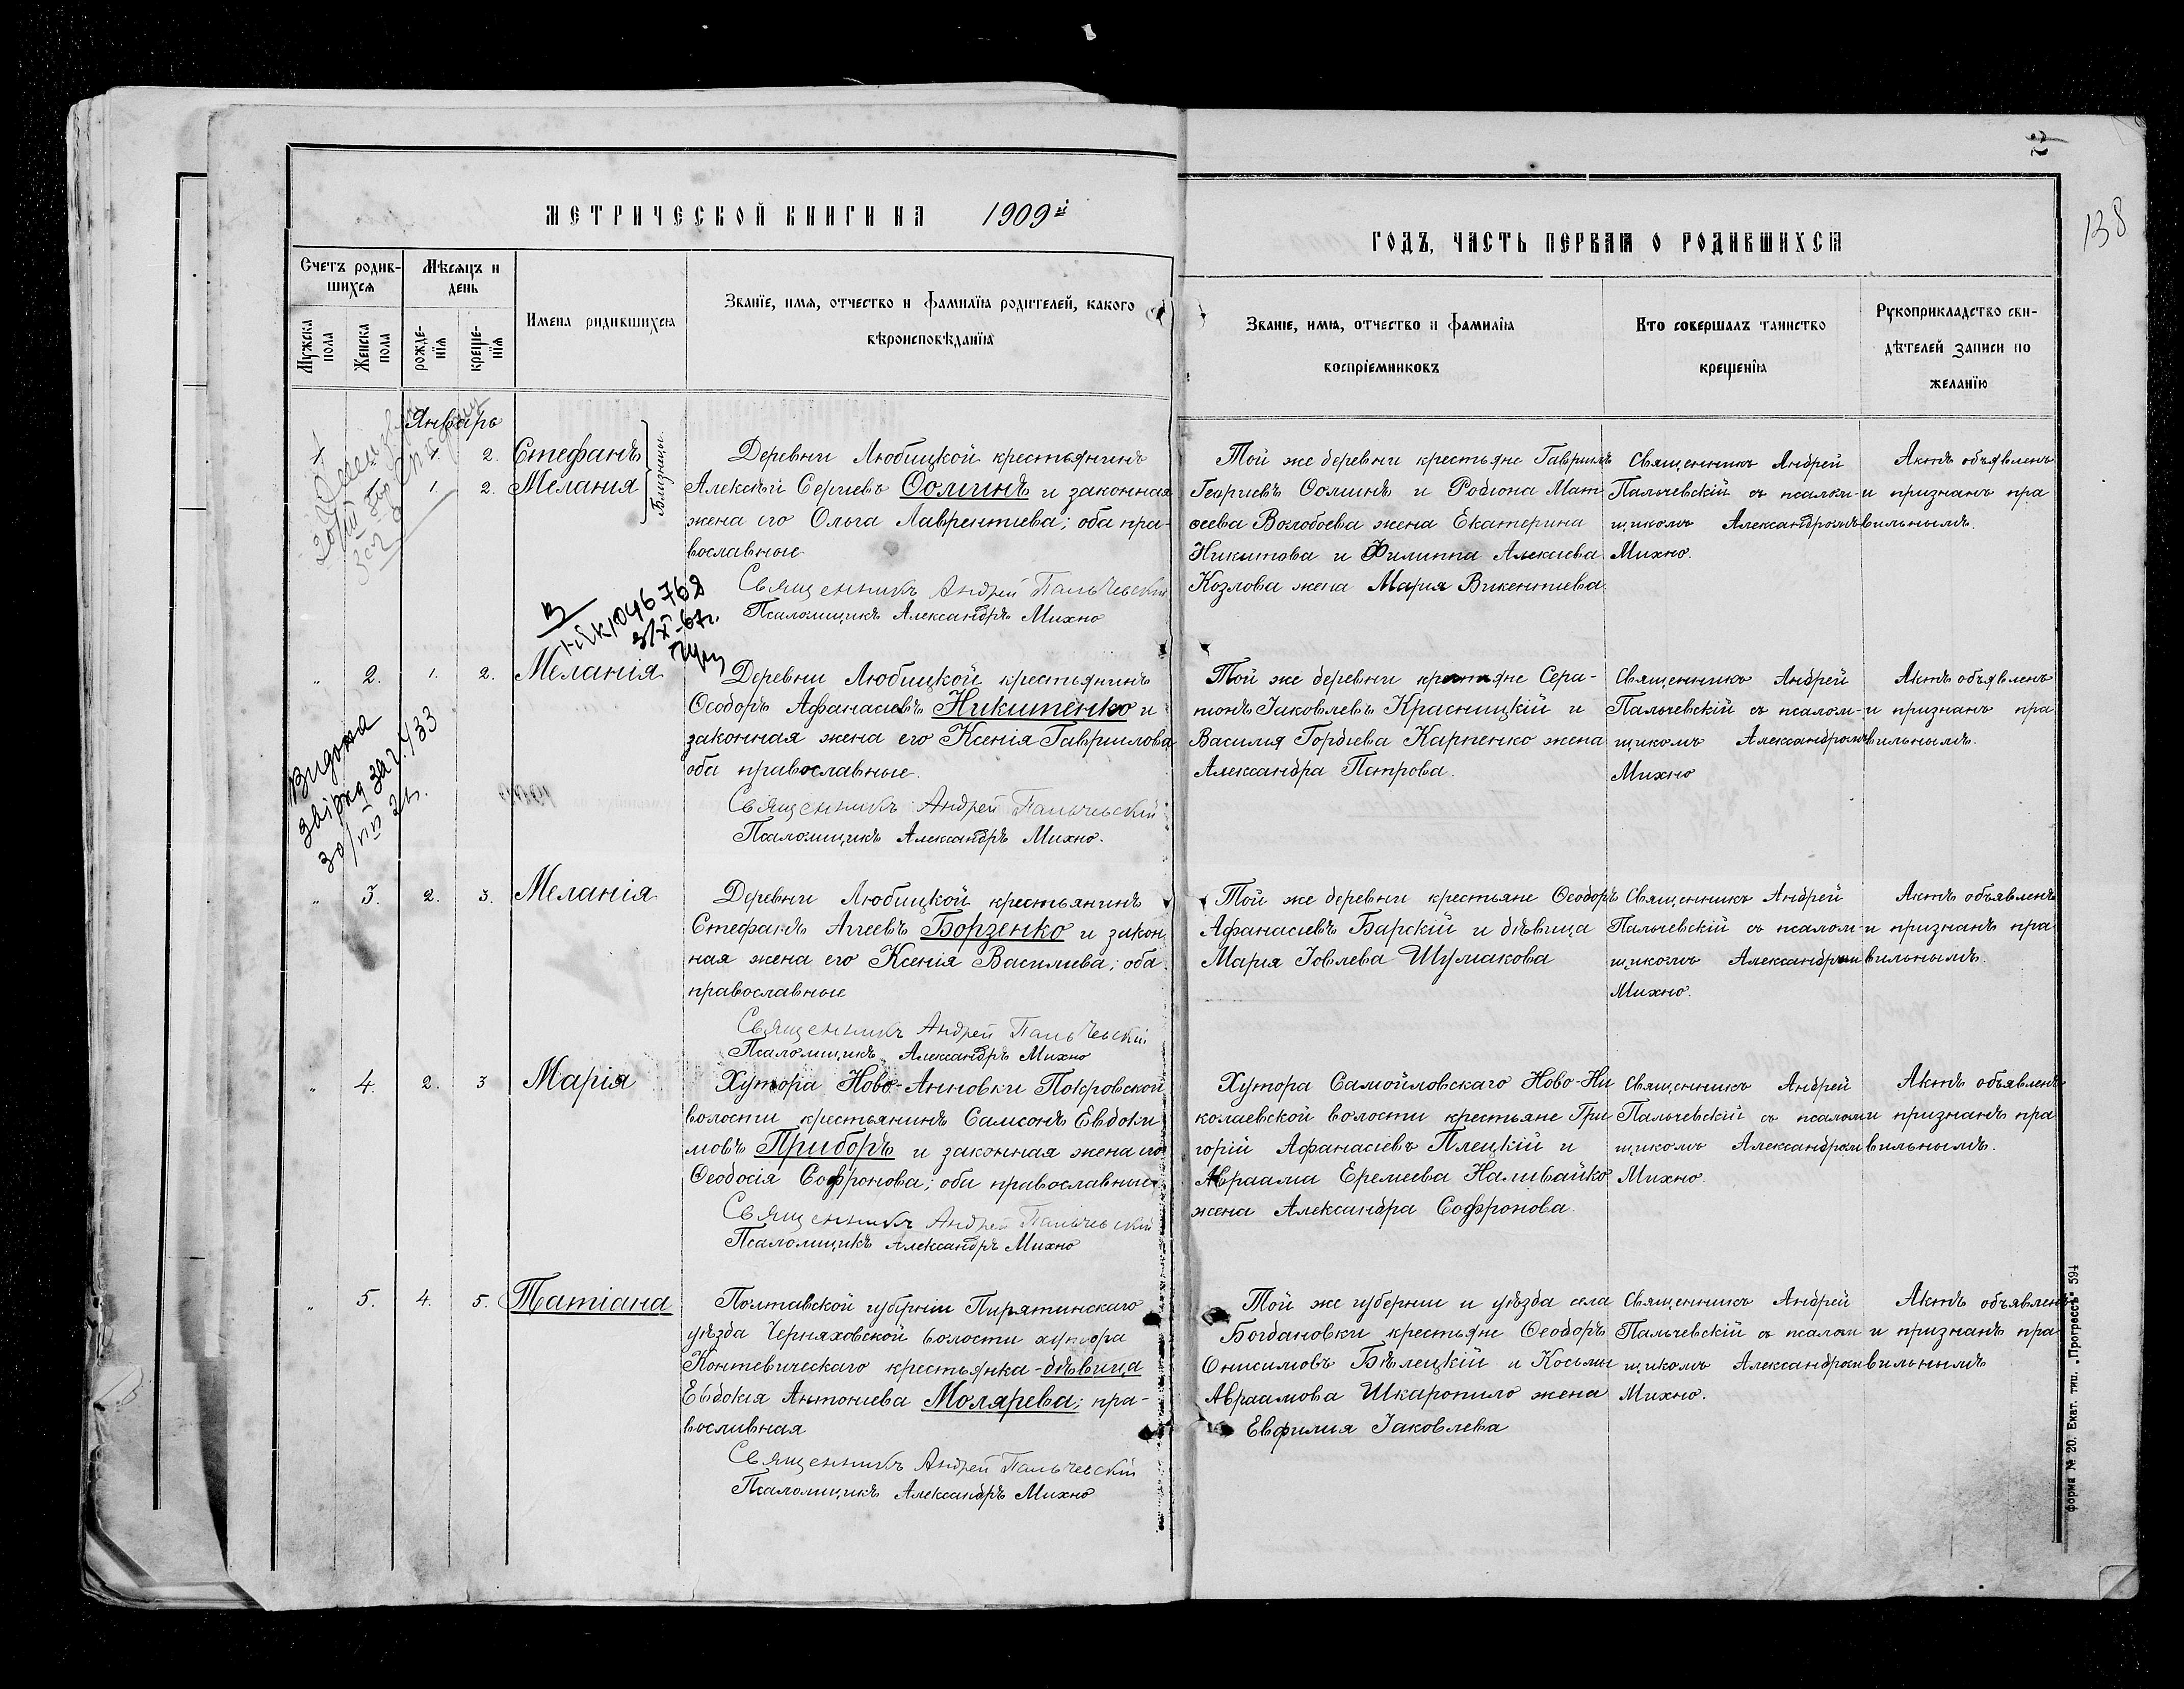 138
МЕТРИЧЕСКОЙ КНИГИ НА 1909й
ГОДЪ, ЧАСТЬ ПЕРВАЯ О РОДИВШИХСЯ
Счетъ родив-
шихся
Мужска пола
Женска пола
Мѣсяцъ и
день
рожде-
нія
креще-
нія
Имена родившихся
Званіе, имя, отчество и фамилія родителей, какого
вѣроисповѣданія
Званіе, имя, отчество и фамилія
воспріемниковъ
Кто совершалъ таинство
крещенія
Рукоприкладство сви-
дѣтелей записи по
желанію
Январь
1. 2. Стефанъ
1. 2. Мелания
Близнецы
Деревни Любицкой крестьянинъ
Алексѣй Сергіевъ Ѳоминъ и законная
жена его Ольга Лаврентіева; оба пра-
вославные
Священникъ Андрей Пальчевскій
Псаломщикъ Александръ Михно
Той же деревни крестьяне Гавріилъ
Георгіевъ Ѳоминъ и Родіона Мат
ѳеева Волобоева жена Екатерина
Никитова и Филиппа Алексіева
Козлова жена Марія Викентіева.
Священникъ Андрей
Пальчевскій съ псалом-
щикомъ Александромъ
Михно.
Актъ объявленъ
и признанъ пра
вильнымъ.
1046768
3/X-67г.
" 2. 1. 2. Меланія
Деревни Любицкой крестьянинъ
Ѳеодоръ Афанасіевъ Никитенко и
законная жена его Ксенія Гавриилова
оба православные.
Священникъ Андрей Пальчевскій
Псаломщикъ Александръ Михно.
Той же деревни крестьяне Сера-
піонъ Іаковлевъ Красницкій и
Василія Гордіева Карпенко жена
Александра Петрова.
Священникъ Андрей
Пальчевскій съ псалом-
щикомъ Александромъ
Михно
Актъ объявленъ
и признанъ пра
вильнымъ.
Видона
" 3. 2. 3. Меланія
Деревни Любицкой крестьянинъ
Стефанъ Аггеевъ Борзенко и закон
ная жена его Ксенія Василіева; оба
православные
Священникъ Андрей Пальчевскій
Псаломщикъ Александръ Михно
Той же деревни крестьяне Ѳеодоръ
Афанасіевъ Барскій и дѣвица
Марія Іовлева Шумакова
Священникъ Андрей
Пальчевскій съ псалом-
щикомъ Александромъ
Михно.
Актъ объявленъ
и признанъ пра
вильнымъ.
" 4. 2. 3 Марія
Хутора Ново-Анновки Покровской
волости крестьянинъ Самсонъ Евдоки
мовъ Приборъ и законная жена его
Ѳеодосія Софронова; оба православные
Священникъ Андрей Пальчевскій
Псаломщикъ Александръ Михно
Хутора Самойловскаго Ново-Ни
колаевской волости крестьяне Гри
горій Афанасіевъ Плецкій и
Авраама Еремеева Наливайко
жена Александра Софронова.
Священникъ Андрей
Пальчевскій съ псалом
щикомъ Александром
Михно.
Актъ объявленъ
и признанъ пра
вильнымъ.
" 5. 4. 5. Татіана
Полтавской губерніи Пирятинскаго
уѣзда Черняховской волости хутора
Контевическаго крестьянка-дѣвица
Евдокія Антоніева Молярева; пра-
вославная
Священникъ Андрей Пальчевскій
Псаломщикъ Александръ Михно
Той же губерніи и уѣзда села
Богдановки крестьяне Ѳеодоръ
Онисимовъ Бѣлецкій и Косьмы
Авраамова Шкаропило жена
Евфимия Іаковлева
Священникъ Андрей
Пальчевскій съ псалом
щикомъ Александром
Михно.
Актъ объявленъ
и признанъ пра-
вильнымъ
форма № 20. Екат. тип. „Прогрессъ" 594